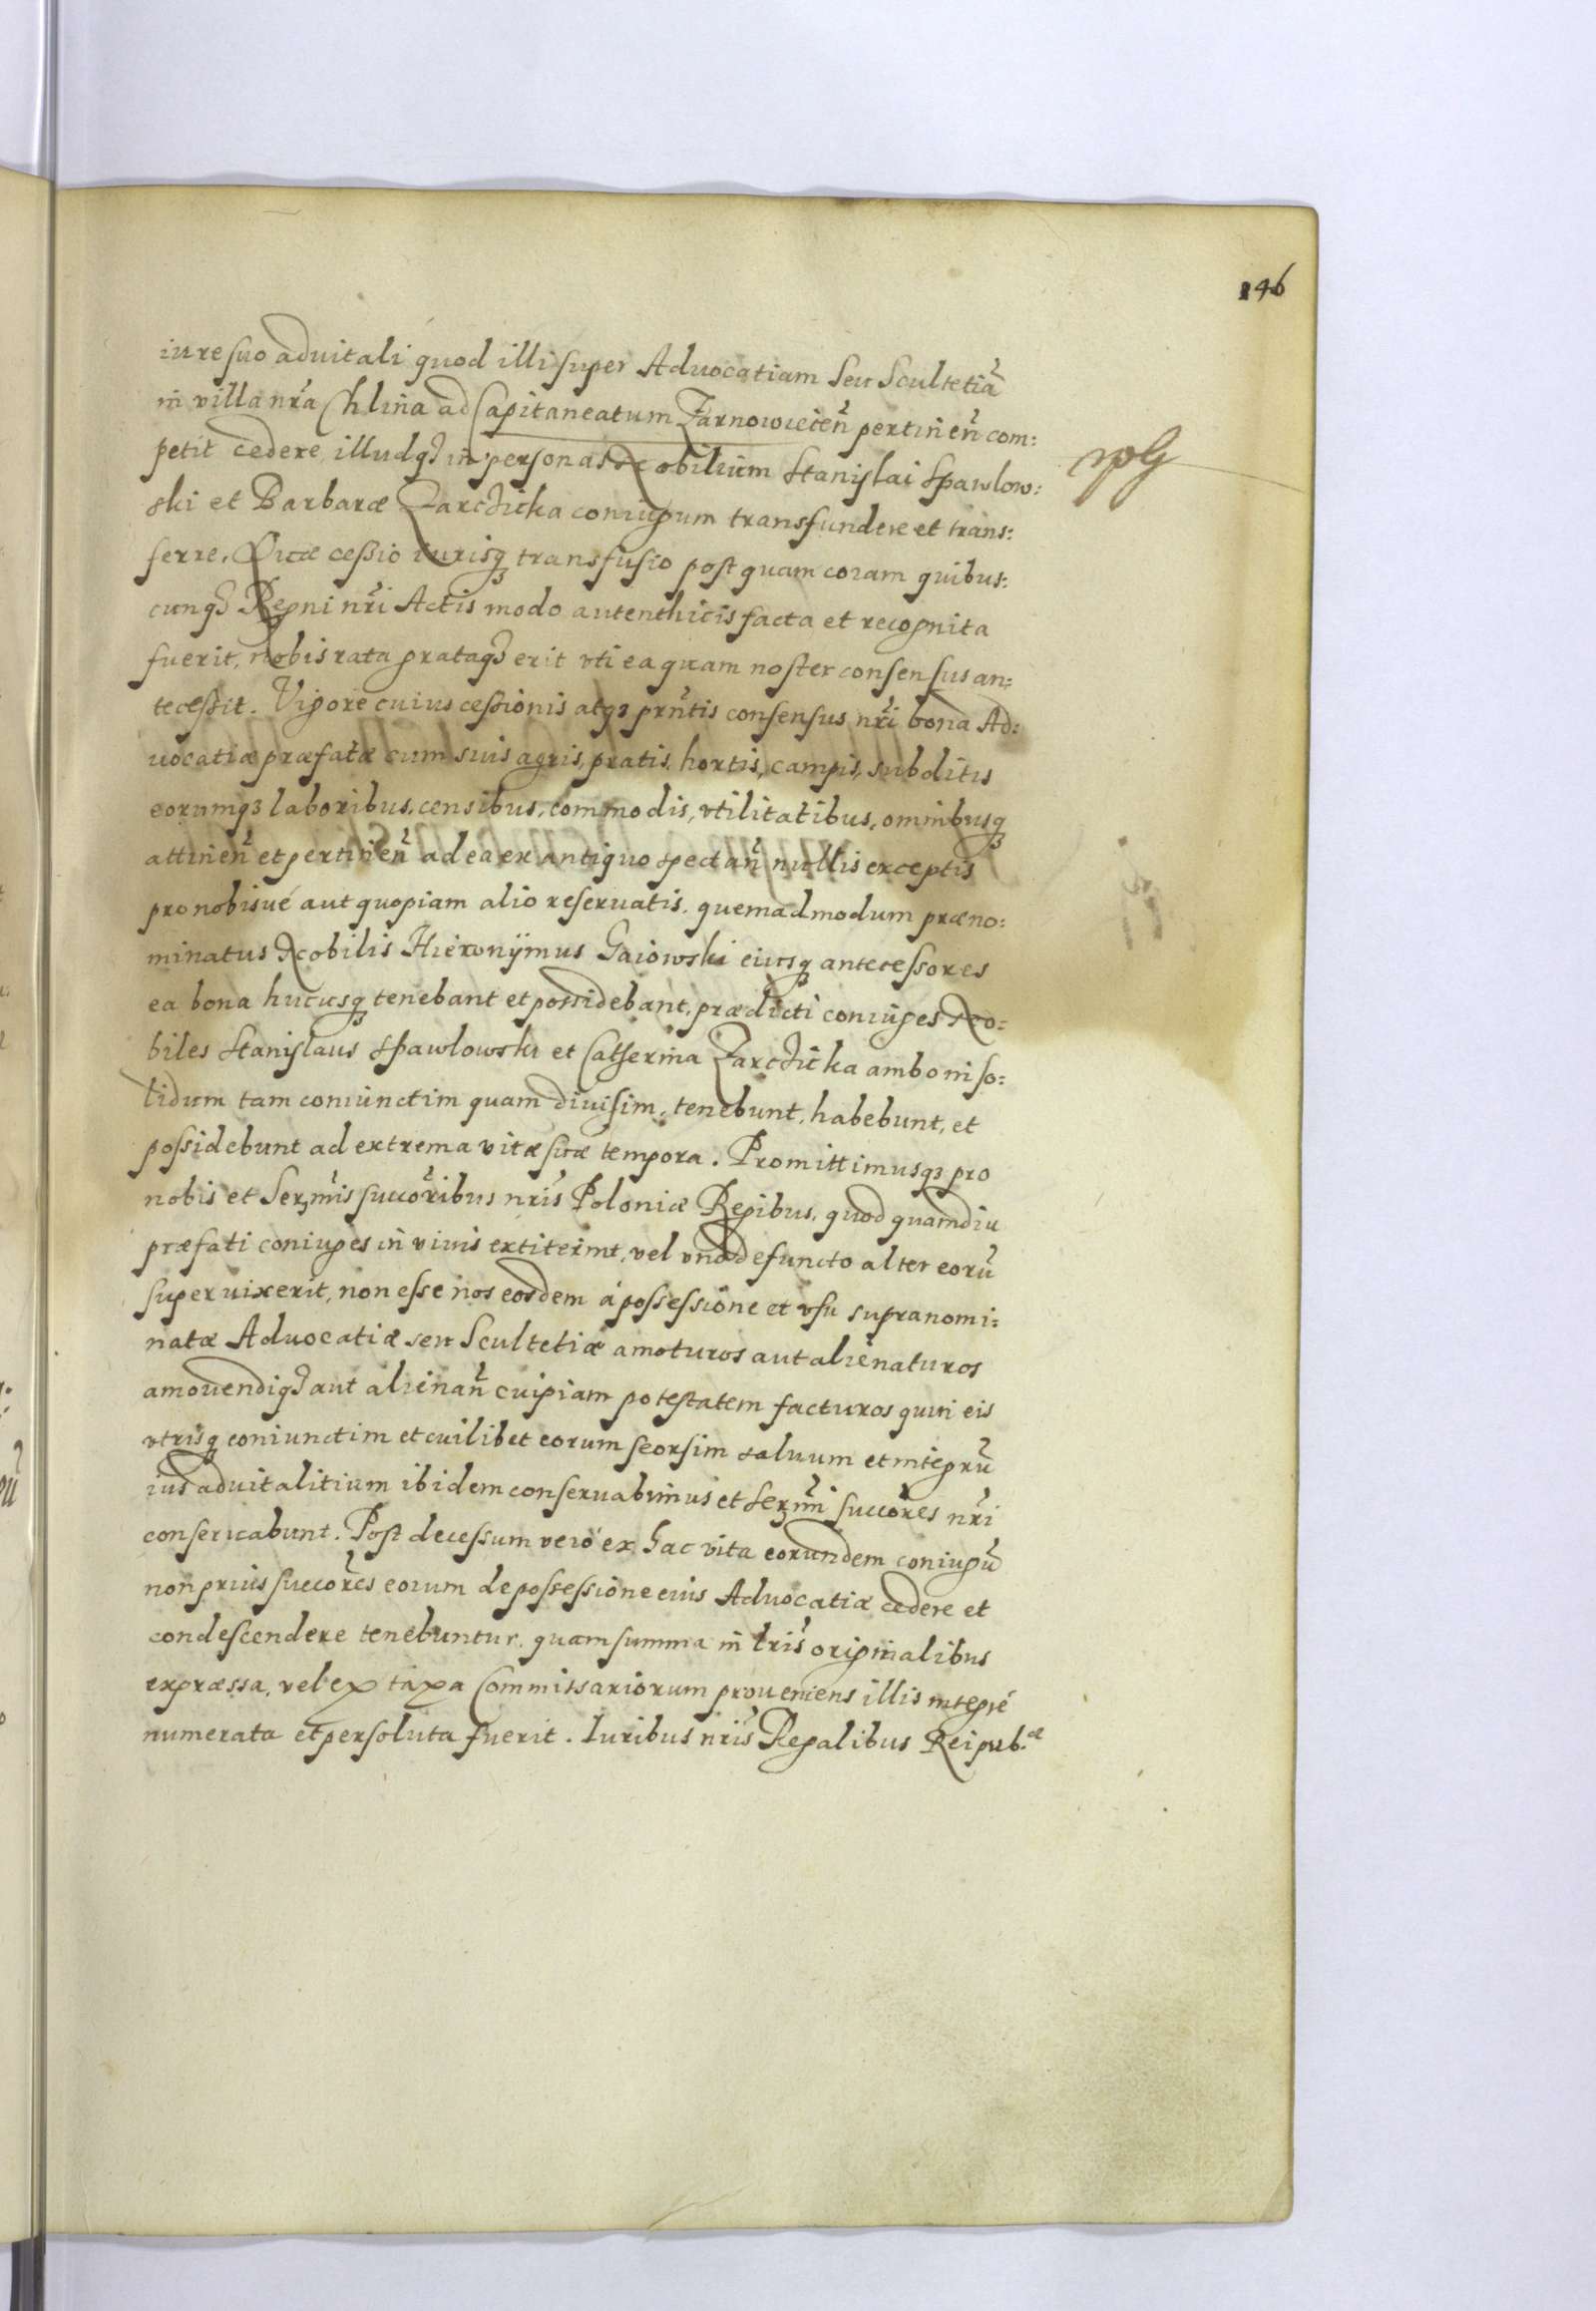 146
iure suo aduitali quod illi super Aduocatiam Seu Scultetiã
in villa nr̃a Chlina ad Capitaneatum Zarnowiecieñ pertineñ com:
petit cedere illudq3 in personas Nobilium Stanislai Spawlow:
ski et Barbaræ Zarczicka coniugum transfundere et trans:
ferre. Quæ cessio iurisq3 transfusio post quam coram quibus:
cunq3 Regni nr̃i Actis modo autenthicis facta et recognita
fuerit, nobis rata grataq3 erit vti ea quam noster consensus an:
tecessit. Vigore cuius cessionis atq3 prñtis consensus nr̃i bona Ad:
uocatiæ præfatæ cum suis agris, pratis, hortis, campis, subditis
eorumq3 laboribus, censibus, commodis, vtilitatibus, omnibusq3
attineñ et pertineñ ad ea ex antiquo spectañ nullis exceptis
pro nobisué aut quopiam alio reseruatis, quemadmodum præno:
minatus Nobilis Hieronÿmus Gaiowski eiusq3 antecessores
ea bona hucusq3 tenebant et possidebant, prædicti coniuges No:
biles Stanislaus Spawlowski et Catherina Zarczicka ambo in so:
lidum tam coniunctim quam diuisim, tenebunt, habebunt, et
possidebunt ad extrema vitæ suæ tempora. Promittimusq3 pro
nobis et Ser̃mis succoribus nr̃is Poloniæ Regibus, quod quamdiu
præfati coniuges in viuis extiterint, vel vno defuncto alter eorũ
superuixerit, non esse nos eosdem á possessione et vsu supranomi:
natæ Aduocatiæ seu Scultetiæ amoturos aut alienaturos
amouendiq3 aut alienañ cuipiam potestatem facturos quin eis
vtrisq3 coniunctim et cuilibet eorum seorsim saluum et integrũ
ius aduitalitium ibidem conseruabimus et Ser̃mi succores nr̃i
conseruabunt. Post decessum veró ex hac vita eorundem coniugũ
non prius succores eorum de possessione eius Aduocatiæ cedere et
condescendere tenebuntur, quam summa in lr̃is originalibus
expræssa, vel ex taxa Commissariorum proueniens illis integré
numerata et persoluta fuerit. Iuribus nr̃is Regalibus Reipub.æ